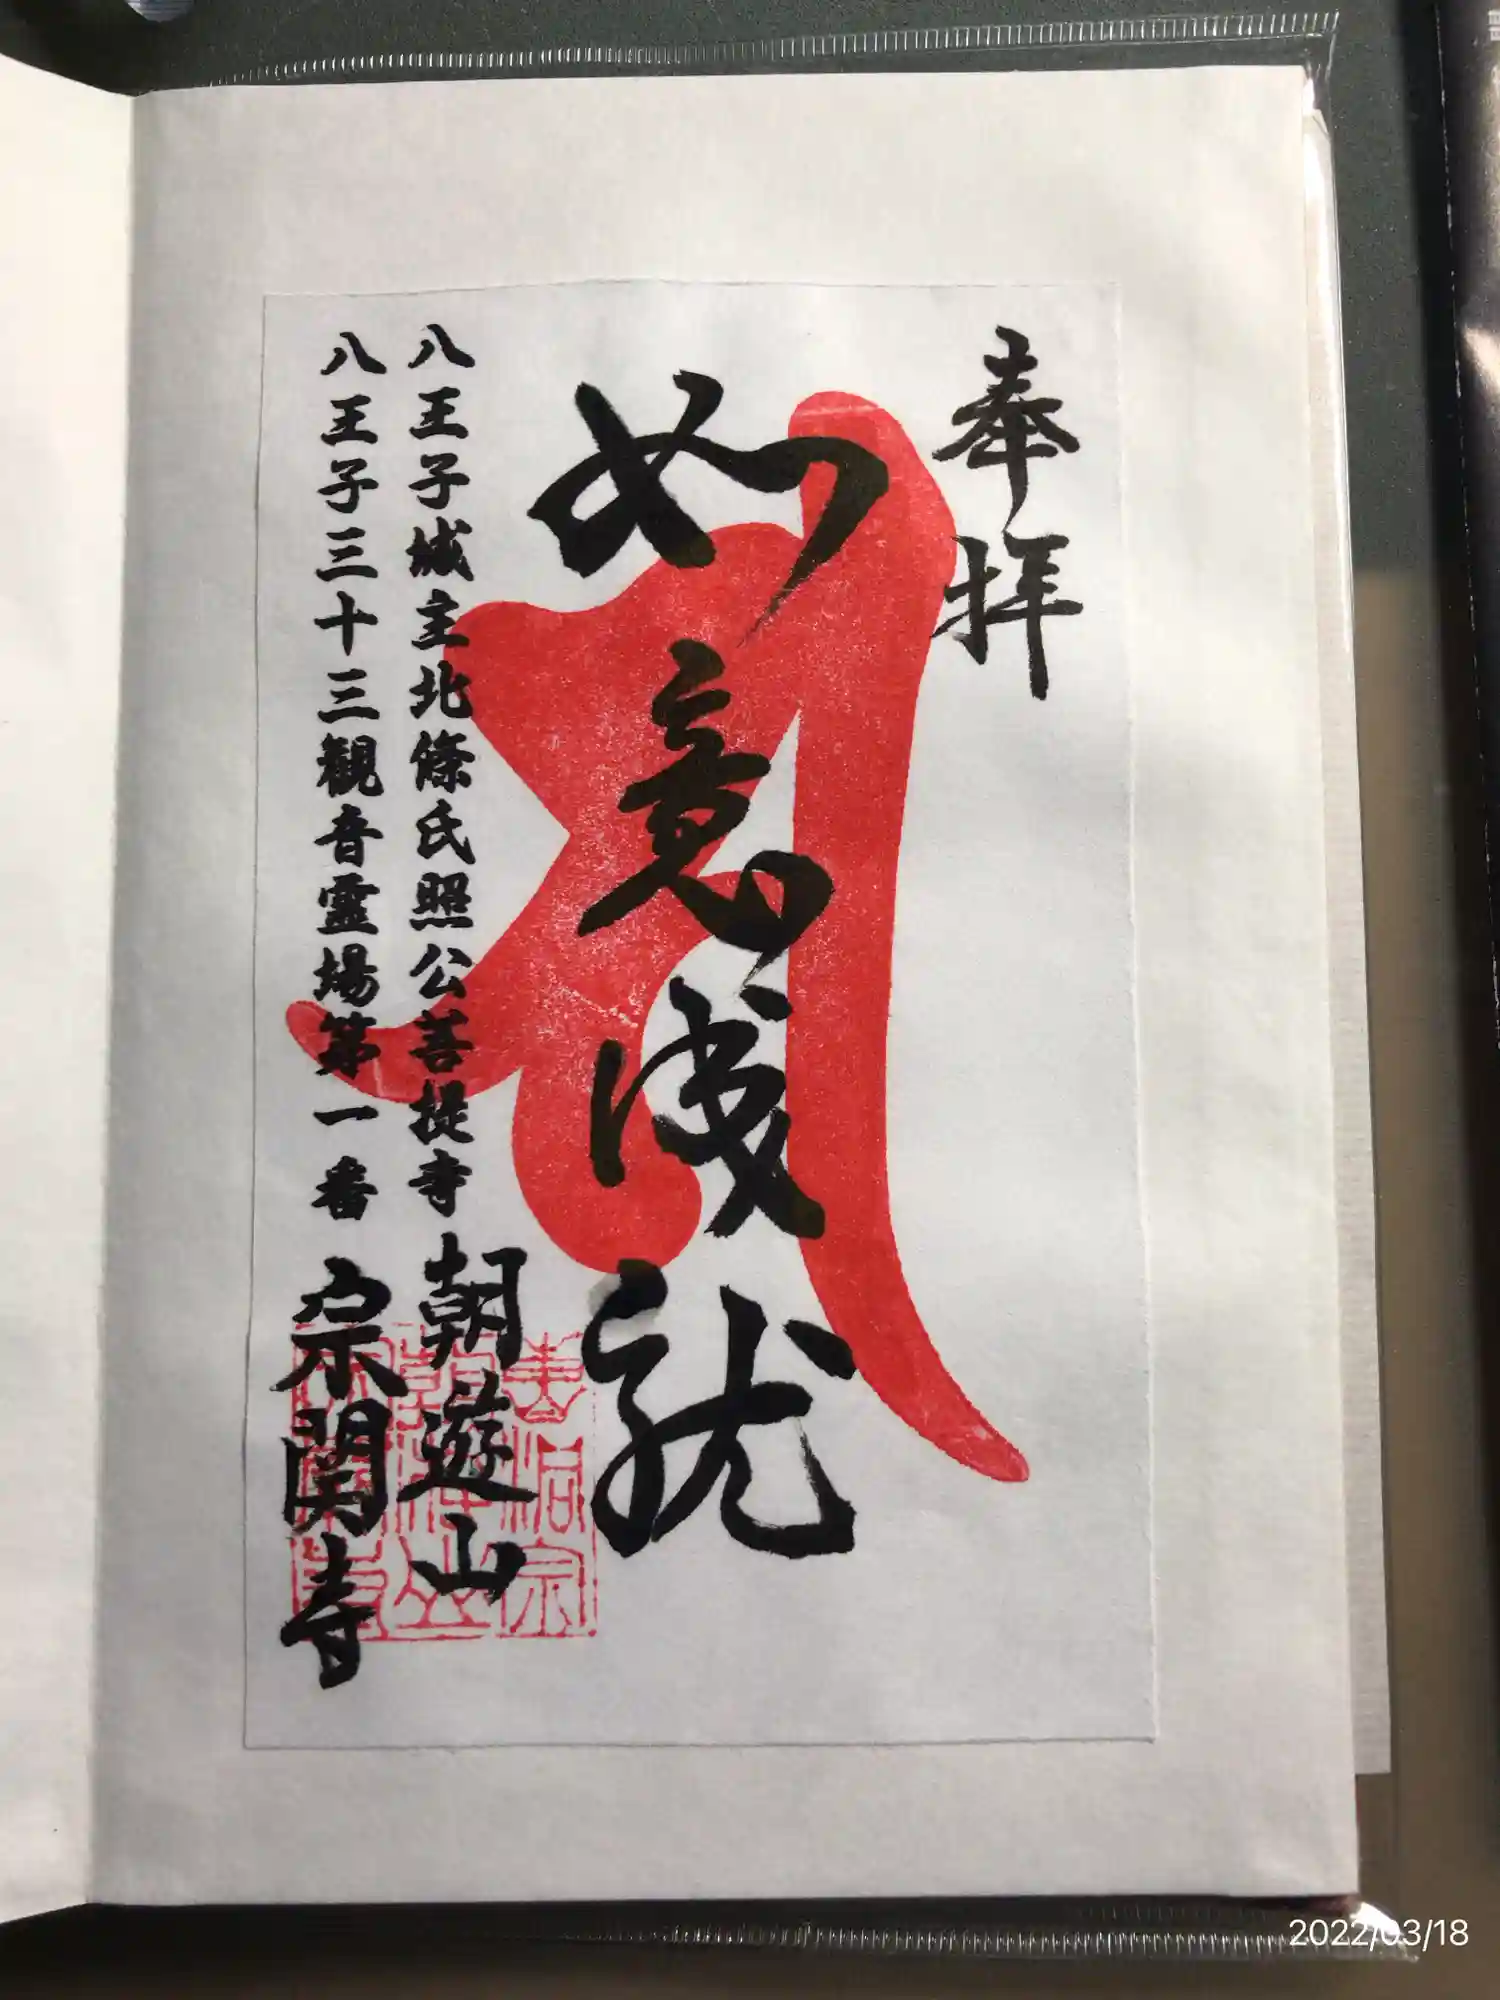 奉拝
如意成就
八王子城主北條氏照公菩提寺 朝遊山
八王子三十三観音霊場第一番 宗関寺
2022/03/18